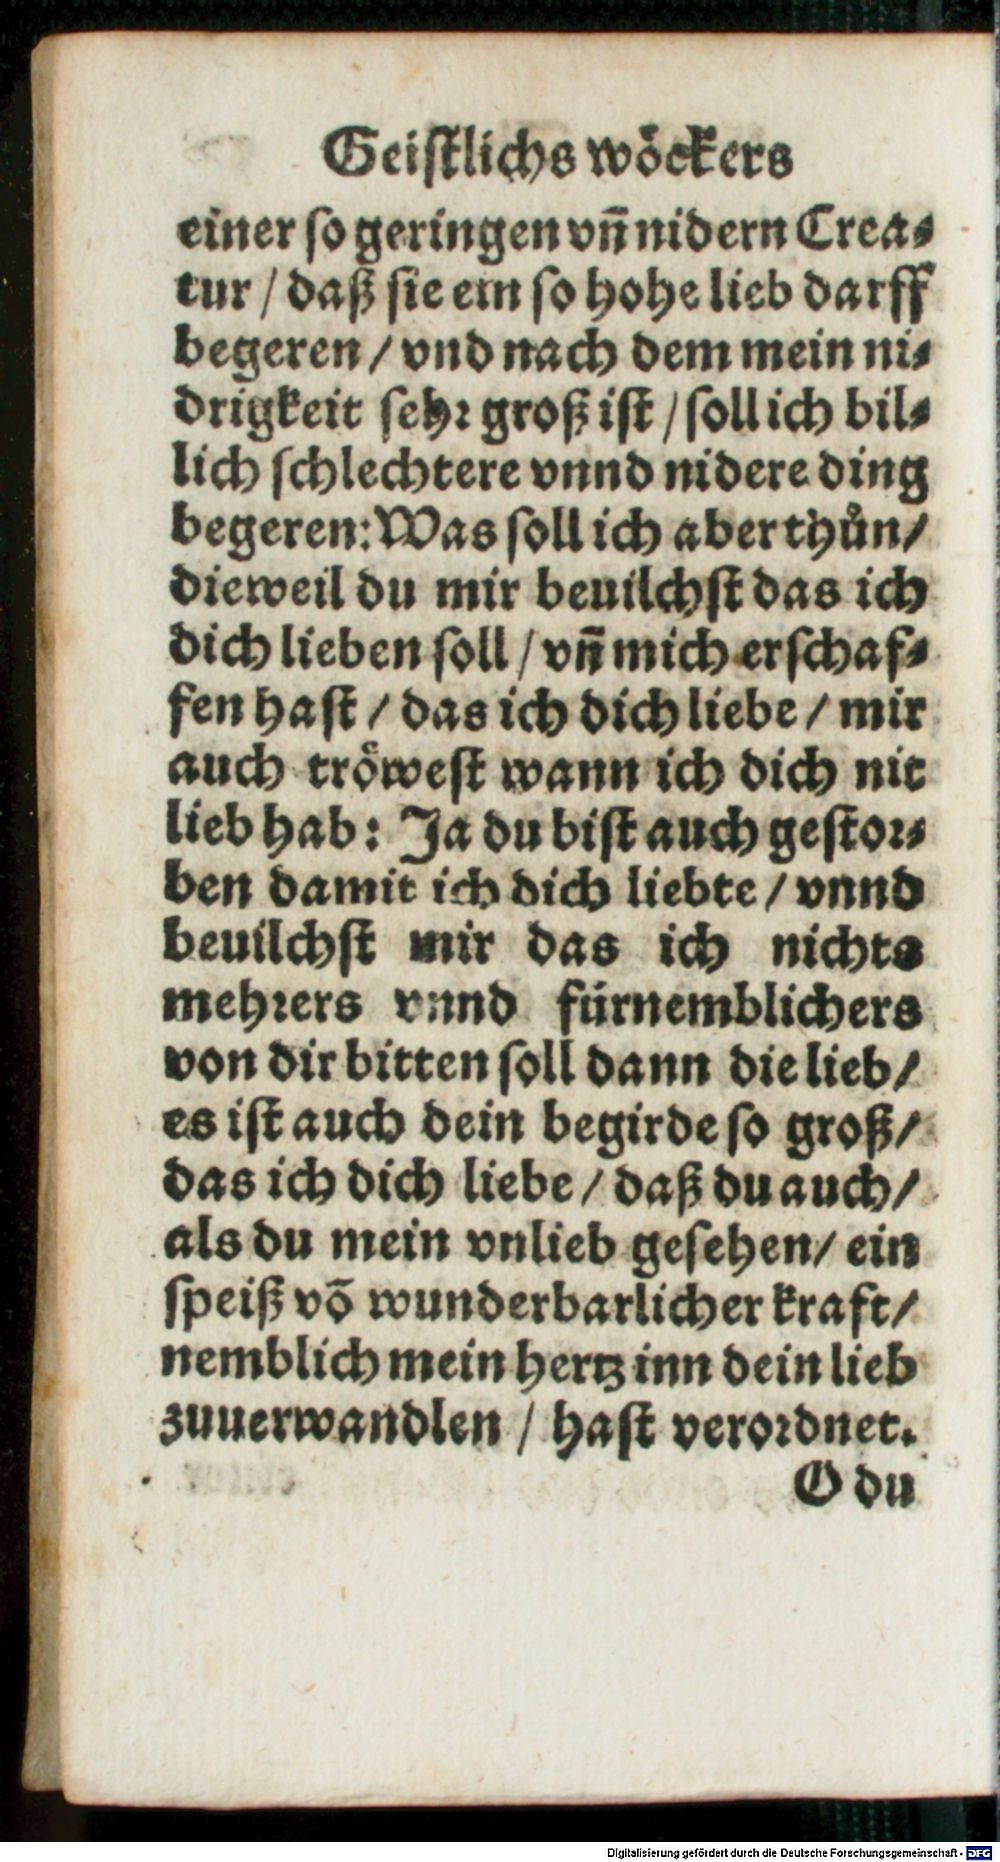 Geiſtlichs woͤckers
einer ſo geringen vn̄ nidern Crea⸗
tur / daß ſie ein ſo hohe lieb darff
begeren / vnd nach dem mein ni⸗
drigkeit ſehꝛ groß iſt / ſoll ich bil⸗
lich ſchlechtere vnnd nidere ding
begeren: Was ſoll ich aber thuͦn /
dieweil du mir beuilchſt das ich
dich lieben ſoll / vn̄ mich erſchaf⸗
fen haſt / das ich dich liebe / mir
auch troͤweſt wann ich dich nit
lieb hab: Ja du biſt auch geſtoꝛ⸗
ben damit ich dich liebte / vnnd
beuilchſt mir das ich nichts
mehꝛers vnnd fürnemblichers
von dir bitten ſoll dann die lieb /
es iſt auch dein begirde ſo groß /
das ich dich liebe / daß du auch /
als du mein vnlieb geſehen / ein
ſpeiß vō wunderbarlicher kraft /
nemblich mein hertz inn dein lieb
zuuerwandlen / haſt veroꝛdnet.
O du
Digitalisierung gefördert durch die Deutsche Forschungsgemeinschaft - DFG